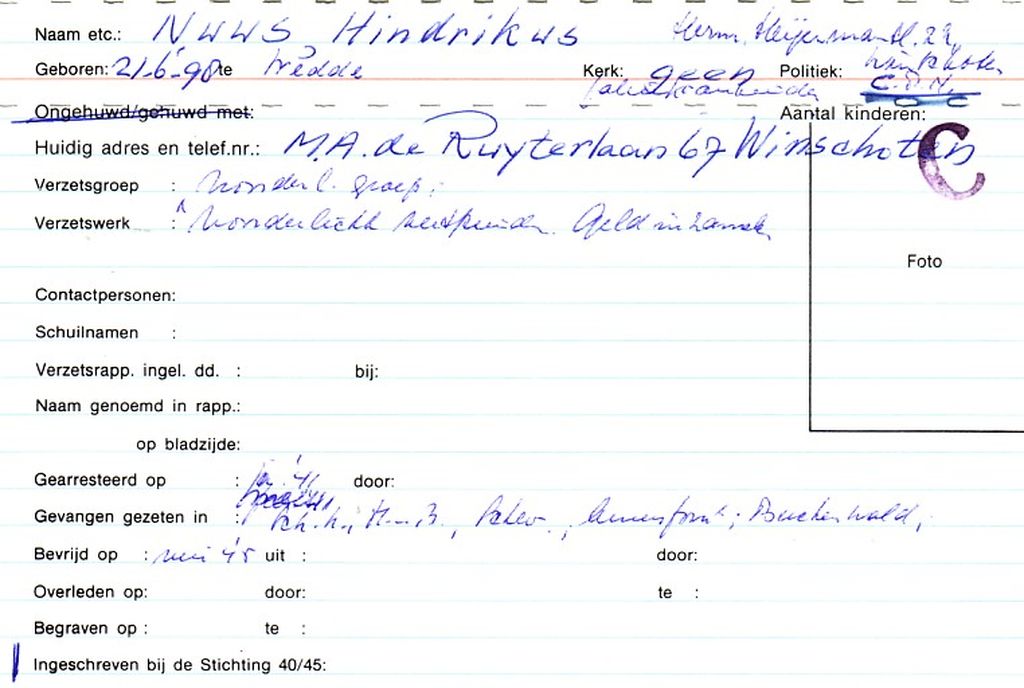 Naam etc.: Nuus Hindrikus Herm. Heijermanstl. 29,
Geboren: 21-6-98 te Wedde Kerk: geen Politiek: Winschoten
C.P.N.
Ongehuwd/gehuwd met: Aantal kinderen:
Huidig adres en telef.nr.: M.A. de Ruyterlaan 67 Winschoten
C
Verzetsgroep : groep;
Verzetswerk : Geld inzamelen
Foto
Contactpersonen:
Schuilnamen :
Verzetsrapp. ingel. dd. : bij:
Naam genoemd in rapp.:
op bladzijde:
Gearresteerd op : '41 door:
Gevangen gezeten in : Amersfoort; Buchenwald,
Bevrijd op : mei '45 uit : door:
Overleden op: door: te :
Begraven op : te :
Ingeschreven bij de Stichting 40/45: